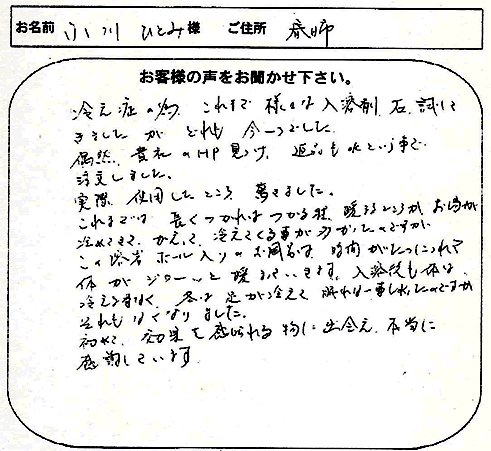 お名前 小川 ひとみ 様 ご住所 春日
お客様の声をお聞かせ下さい。
冷え症の為、これまで様々な入溶剤、石、試して
きましたが どれも今一つでした。
偶然、貴社のHP見つけ、返品も出来という事で
注文しました。
実際、使用したところ 驚きました。
これまでは 長くつかればつかる程、暖まるどころか お湯が
冷めてきて、かえって、冷えてくる事が多かったのですが
この溶岩ボール入りのお風呂は、時間がたつにつれて
体が ジワーッと暖まっていきます。入浴後も体は、
冷える事なく、冬は足が冷えて 眠れない事もあったのですが
それもなくなりました。
初めて、効果を感じられる物に出会え、本当に
感謝しています